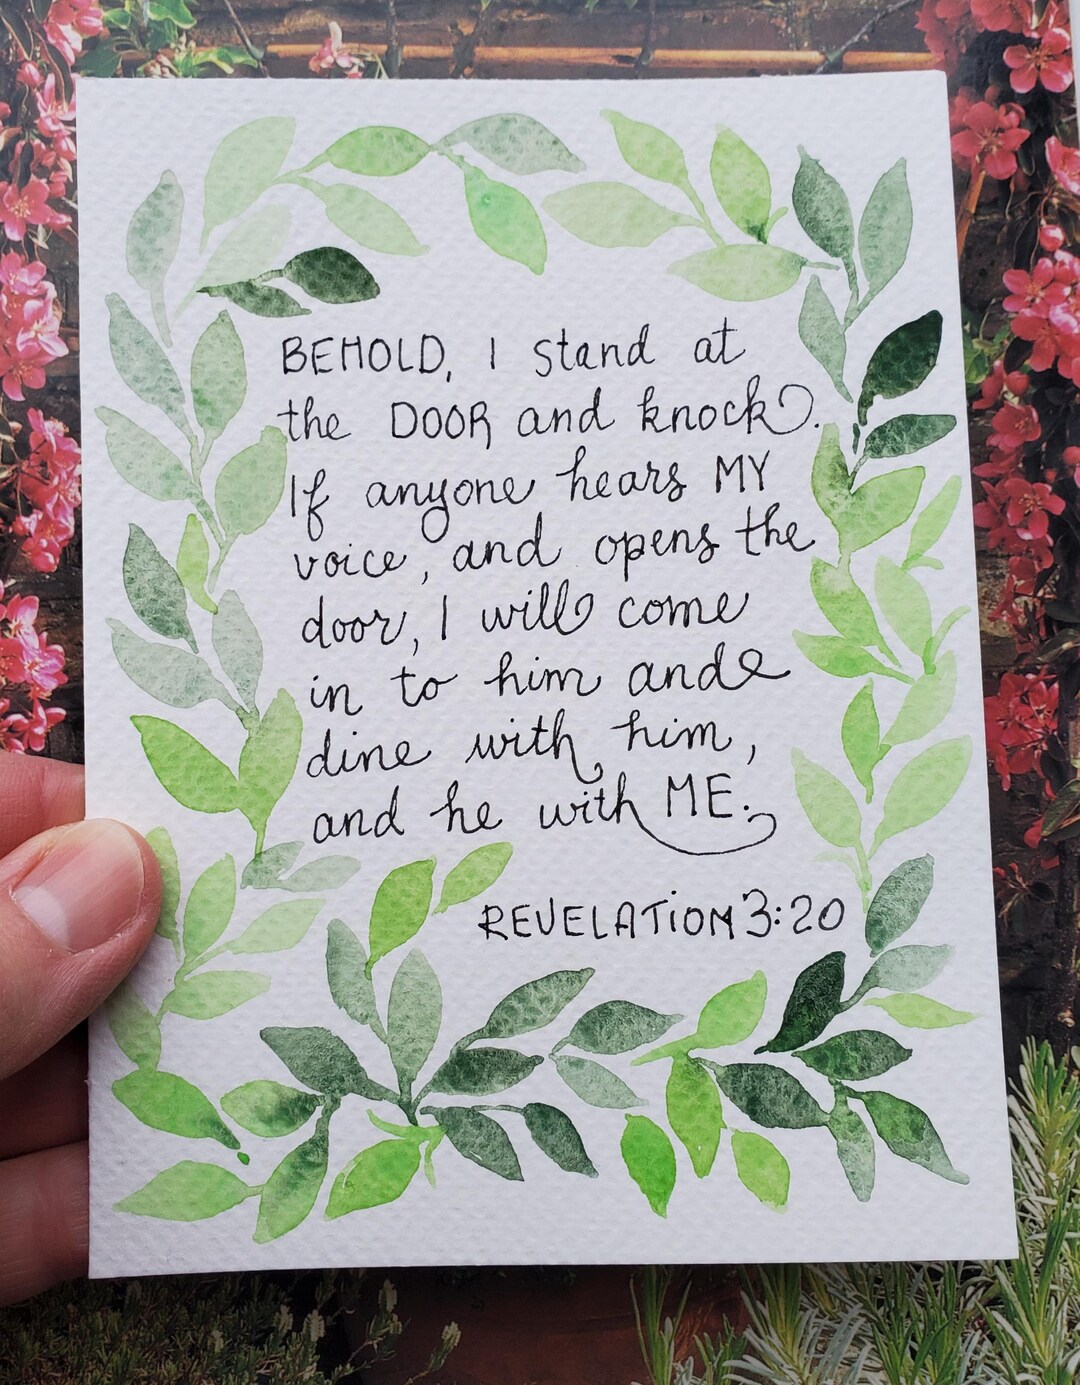 BEHOLD, I stand at
the DOOR and knock.
If anyone hears MY
voice, and opens the
door, I will come
in to him and
dine with him,
and he with ME.
REVELATION 3:20